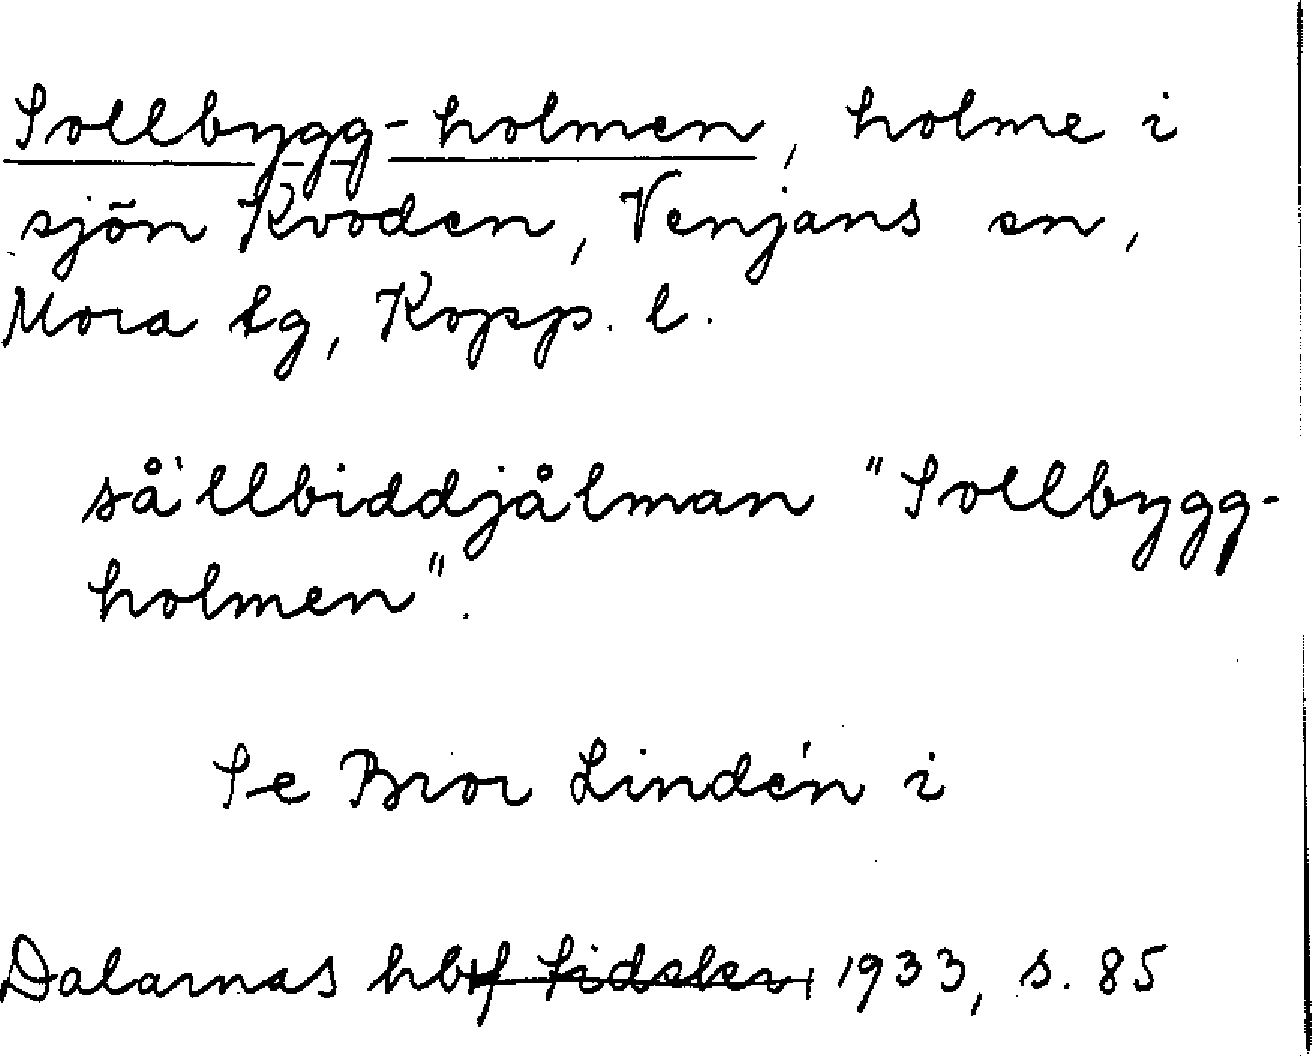 Sollbygg-holmen, holme i
sjön Kvoden, Venjans sn,
Mora tg, Kopp. l.
så'llbiddjålman "Sollbygg-
holmen".
Se Bror Lindén i
Dalarnas hbf 1933, s. 85